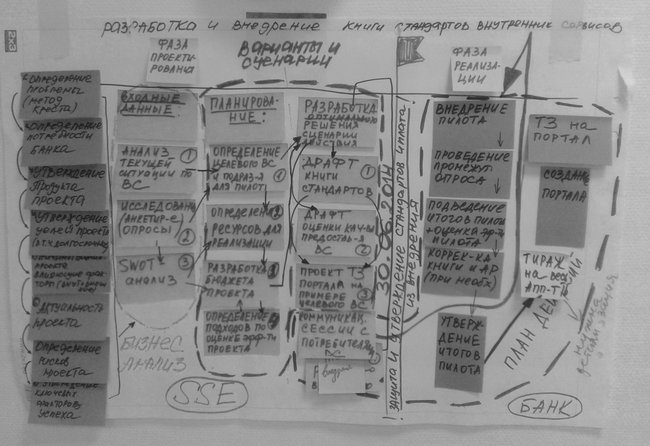 РАЗРАБОТКА и ВНЕДРЕНИЕ КНИГИ СТАНДАРТОВ ВНУТРЕННИХ СЕРВИСОВ
ФАЗА
ПРОЕКТИ-
РОВАНИЯ
ВАРИАНТЫ И
СЦЕНАРИИ
ФАЗА
РЕАЛИЗА-
ЦИИ
Определение
проблемы
(метод
креста)
Определение
потребности
БАНКА
УТВЕРЖДЕНИЕ
Продукта
проекта
УТВЕРЖДЕНИЕ
целей проекта
Актуальность
проекта
Определение
рисков
проекта
ключевых
факторов
успеха
ВХОДНЫЕ
ДАННЫЕ:
АНАЛИЗ
ТЕКУЩЕЙ
СИТУАЦИИ ПО
ВС
1
ИССЛЕДОВАН
(АНКЕТИР-Е,
ОПРОСЫ)
2
SWOT
АНАЛИЗ
3
БИЗНЕС
АНАЛИЗ
ПЛАНИРОВА-
НИЕ:
ОПРЕДЕЛЕНИЕ
ЦЕЛЕВОГО ВС
И ПОДРАЗ-Я
ДЛЯ ПИЛОТ
1
ОПРЕДЕЛЕН
РЕСУРСОВ ДЛЯ
РЕАЛИЗАЦИИ
РАЗРАБОТКА
БЮДЖЕТА
ПРОЕКТА
ОПРЕДЕЛЕНИЕ
ПОДХОДОВ ПО
ОЦЕНКЕ ЭФФ-ТИ
ПРОЕКТА
SSE
РАЗРАБОТКА
ОПТИМАЛЬНОГО
РЕШЕНИЯ
СЦЕНАРИИ
ДЕЙСТВИЯ
ДРАФТ
КНИГИ
СТАНДАРТОВ
1
ДРАФТ
ОЦЕНКИ КАЧ-ВА
ПРЕДОСТАВ-Я
ВС
2
ПРОЕКТ ТЗ
ПОРТАЛА НА
ПРИМЕРЕ
ЦЕЛЕВОГО ВС
КОММУНИКАЦ.
СЕССИИ С
ПОТРЕБИТЕЛ
ВС
30.06.2014
ЗАЩИТА И УТВЕРЖДЕНИЕ СТАНДАРТОВ И ПЛАТА
ИХ ВНЕДРЕНИЯ
ВНЕДРЕНИЕ
ПИЛОТА
ПРОВЕДЕНИЕ
ПРОМЕЖУТ.
ОПРОСА
ПОДВЕДЕНИЕ
ИТОГОВ ПИЛОТА
+ ОЦЕНКА ЭФ-ТИ
ПИЛОТА
КОРРЕК-КА
КНИГИ И АР
(ПРИ НЕОБХ)
УТВЕР-
ЖДЕНИЕ
ИТОГОВ
ПИЛОТА
ТЗ НА
ПОРТАЛ
СОЗДАНИЕ
ПОРТАЛА
ТИРАЖ
НА ВЕСЬ
АПП-Т
ПЛАН ДЕЙСТВИЙ
БАНК